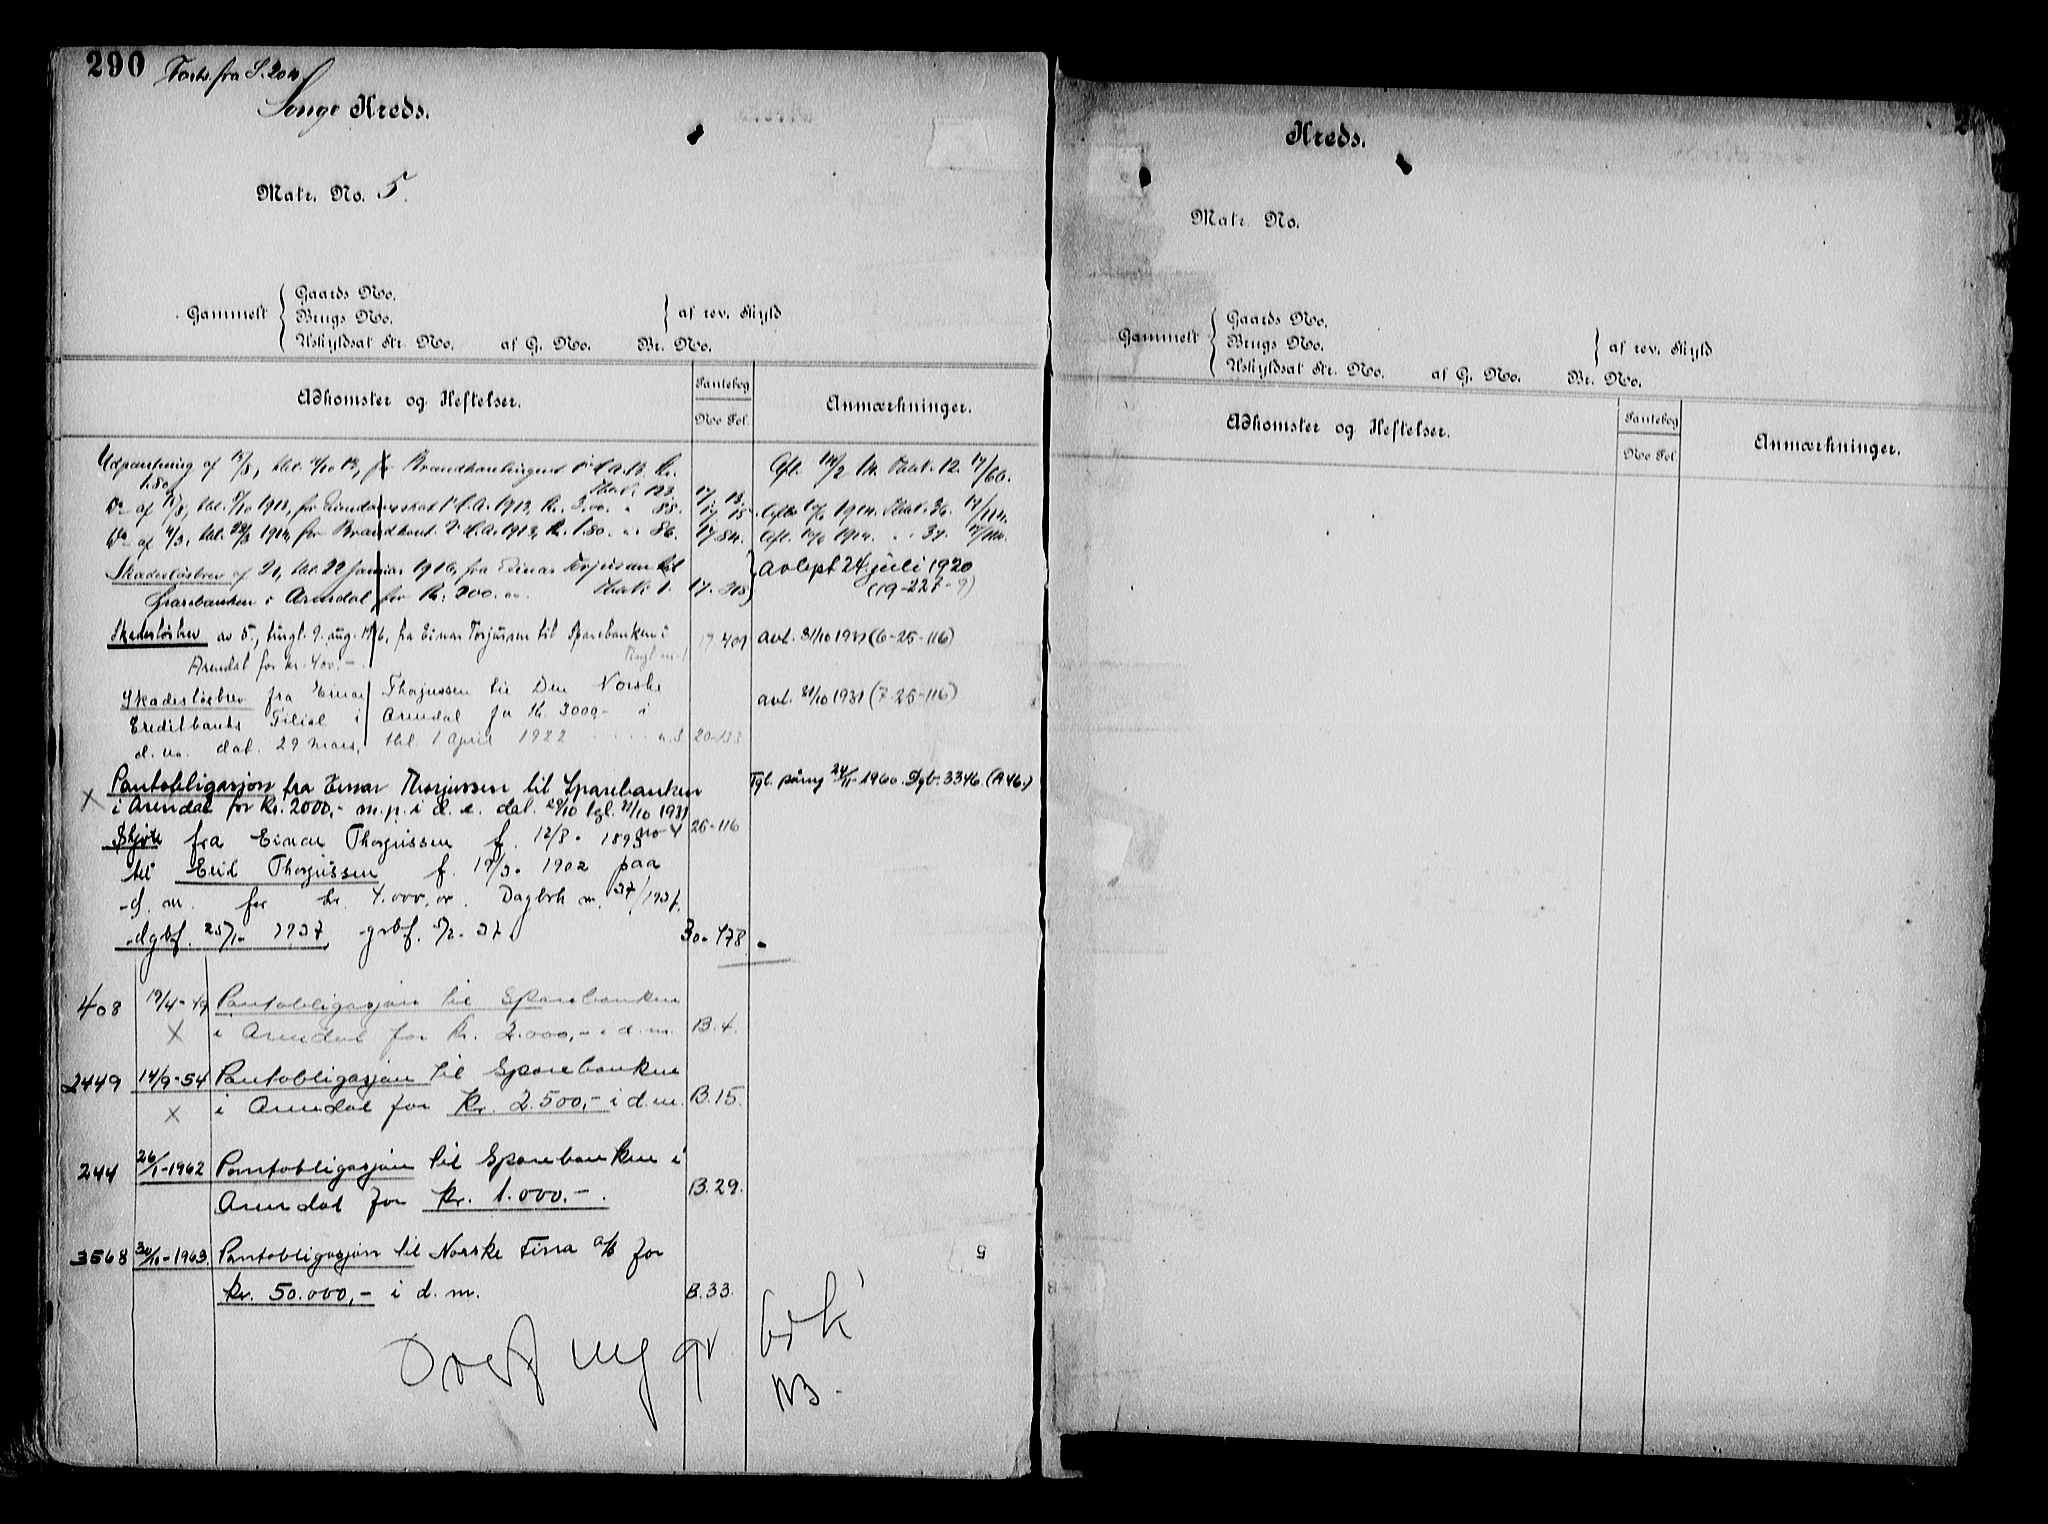 290 Forts. fra S. 204
Songe Kreds.
Matr. No. 5.
Gammelt
Gaards No.
Brugs No.
Uskyldsat Str. No. af G. No. Br. No.
af rev. Skyld
Adkomster og Heftelser.
Pantebog
No Fol.
Anmærkninger.
Udpantning af
1.80
Do af for Eiendomsskat 1913, Kr. 3,00
Do af 1914, for Brandkont. 1913, Kr. 1.80 86. 17 84.
Skadesløsbrev af 21, tbl. 22 Januar 1916, fra Einar Torjussen til
Sparebanken i Arendal for Kr. 200. 17. 315
Avlyst 24 juli 1920
(19-227-9)
Skadesløsbrev av 5., tingl. 9. aug. 1916, fra Einar Torjussen til Sparebanken i 17 409
Arendal for kr. 400.-
avl. 31/10 1931 (6-25-116)
Skadesløsbrev fra Einar Thorjussen til Den Norske
Creditbanks Filial i Arendal for Kr. 3000,- i
d. no. dat. 29 Mars, tbl 1 April 1922 20-133
avl. 31/10 1931 (7-25-116)
X Pantobligasjon fra Einar Thorjussen til Sparebanken
i Arendal for kr. 2000,- m. p. i d. e. dat. 29/10 tgl. 31/10 1931
no 4 25-116
Tgl. på ny 24/11-1960. Dgb. 3346. (A46.)
Skjøte fra Einar Thorjussen f. 12/8- 1893
til Erid Thorjussen f. 19/3- 1902 paa
d. m. for kr. 4.000,00. Dagbok nr. 37/1937.
dgbf. 25/1- 1937, grbf. 5/2- 37. 30-478
408 19/4-49 Pantobligasjon til Sparebanken
X i Arendal for kr. 2.000,- i d.m. B.4.
2449 14/9-54 Pantobligasjon til Sparebanken
X i Arendal for kr. 2.500,- i d.m. B.15.
244 26/1-1962 Pantobligasjon til Sparebanken i
Arendal for kr. 1.000.-. B.29.
3568 30/10-1963. Pantobligasjon til Norske Fina a/s for
kr. 50.000,- i d. m. B.33.
Overf ny gr
NB.
Kreds.
Matr. No.
Gammelt
Gaards No.
Brugs No.
Uskyldsat Str. No. af G. No. Br. No.
af rev. Skyld
Adkomster og Heftelser.
Pantebog
No Fol.
Anmærkninger.